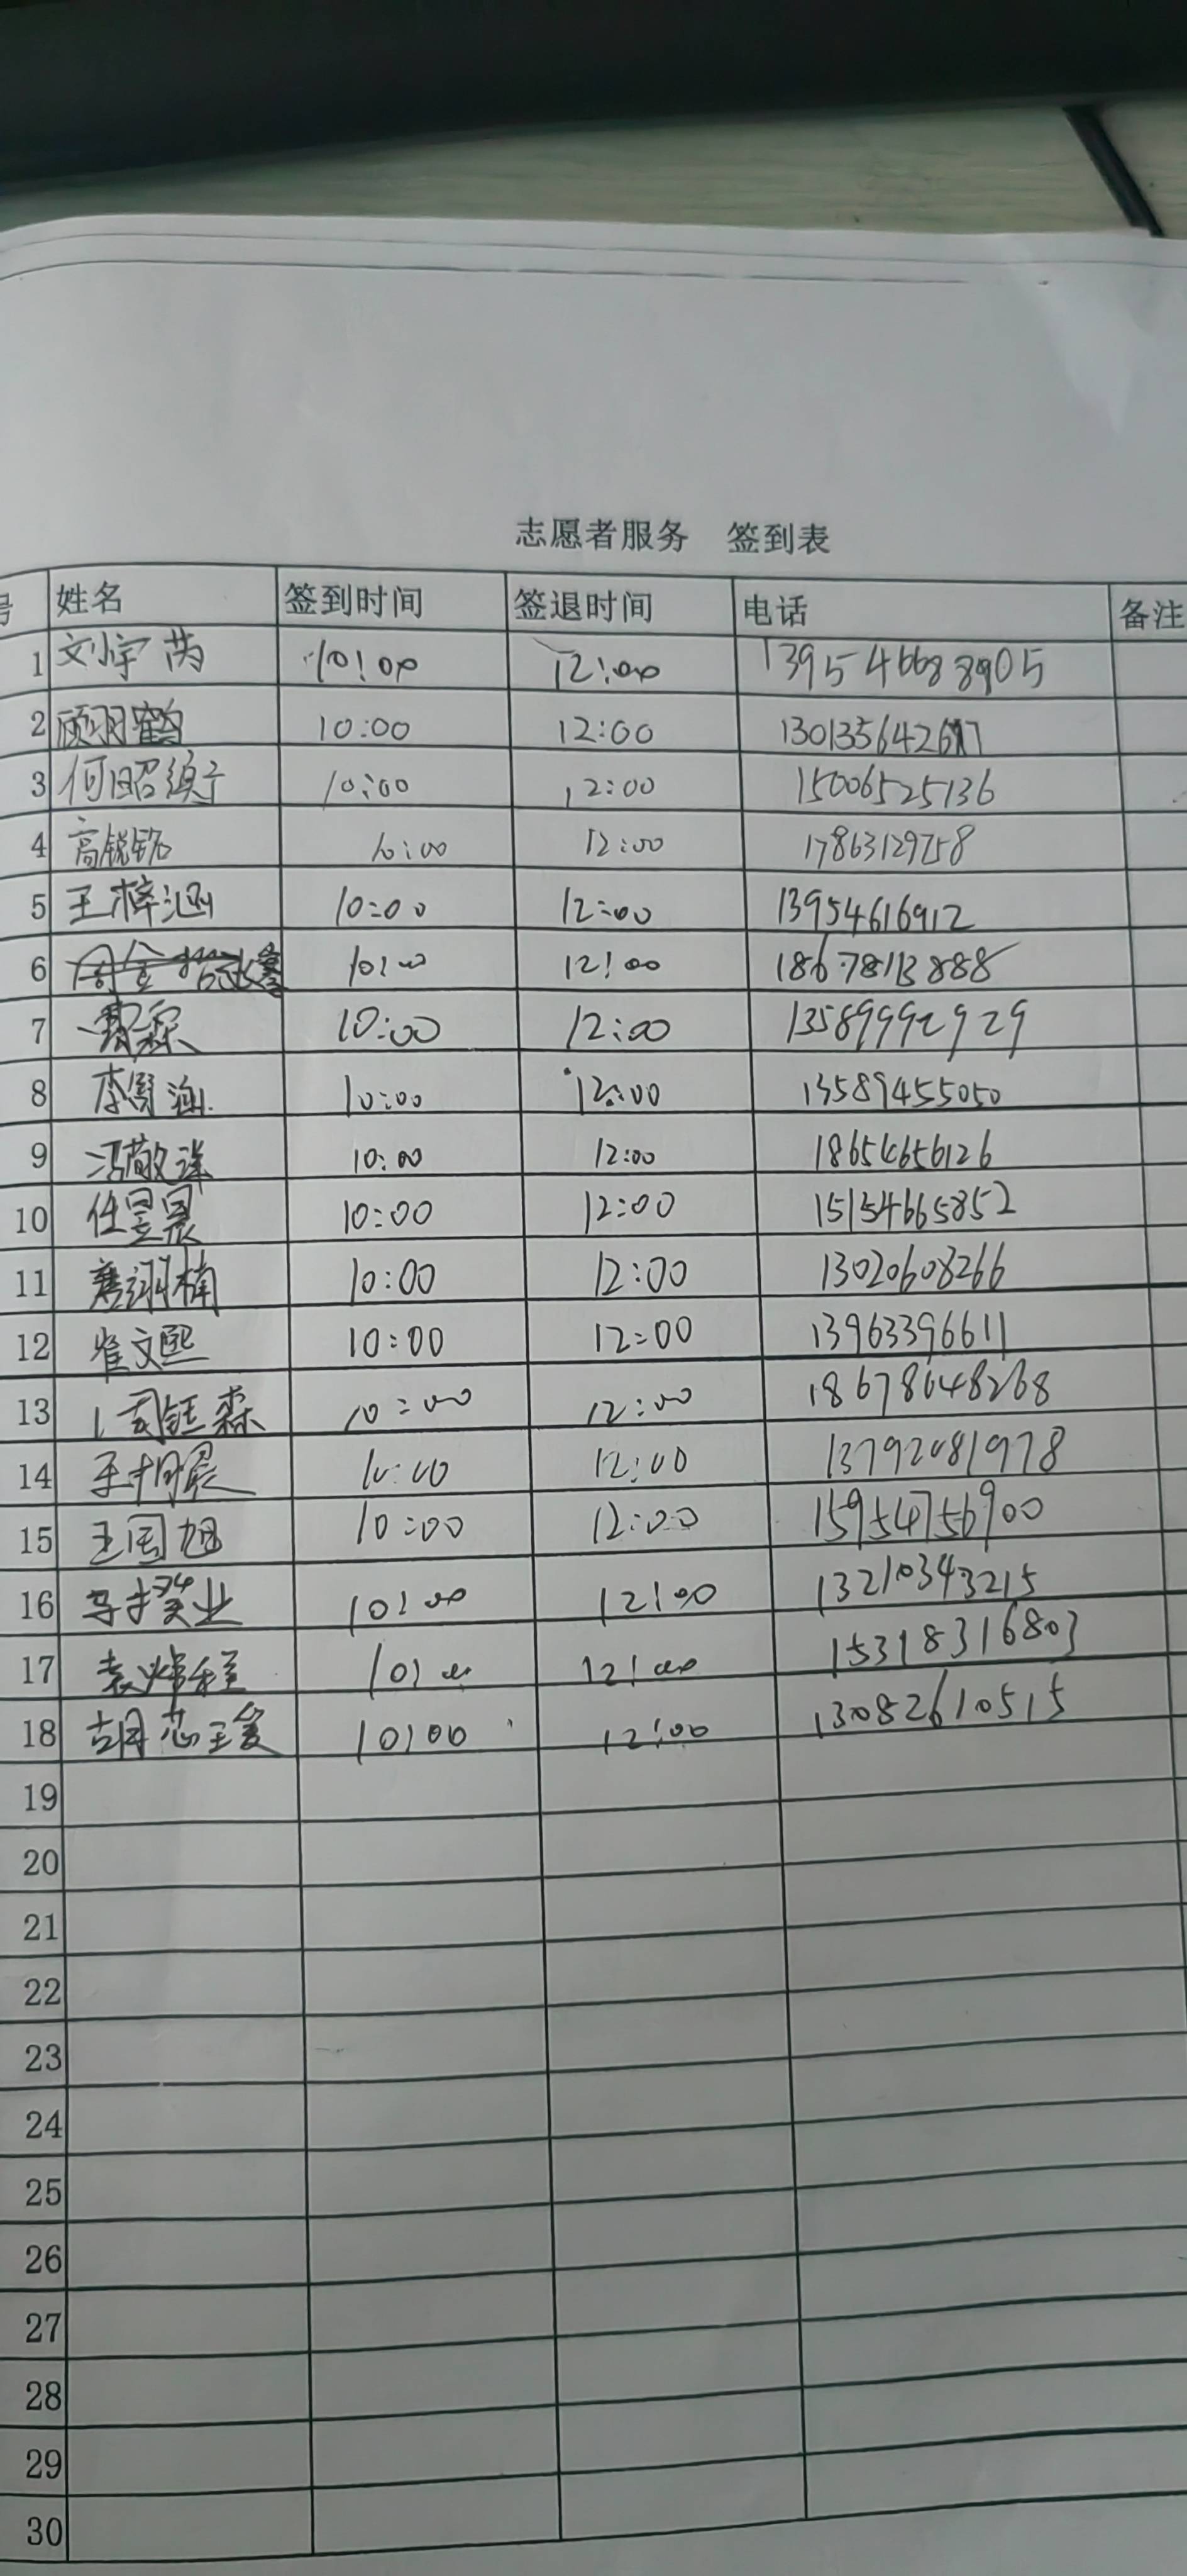 志愿者服务 签到表
号 姓名 签到时间 签退时间 电话 备注
1 10:00 12:00
2 顾羽鹤 10:00 12:00
3 何昭颍子 10:00 12:00 15006525136
4 高锐铭 10:00 12:00 17863129758
5 王梓涵 10:00 12:00 13954616912
6 10:00 12:00 18678113888
7 10:00 12:00 13589992929
8 李胤涵 10:00 12:00 13589455050
9 冯敬洋 10:00 12:00 18654656126
10 任昱晨 10:00 12:00 15154665852
11 唐翊楠 10:00 12:00 13020608266
12 崔文熙 10:00 12:00 13963396611
13 周钰森 10:00 12:00 18678648268
14 10:00 12:00 13792081978
15 王国旭 10:00 12:00 15954756900
16 10:00 12:00 13210343215
17 袁烨程 10:00 12:00 15318316803
18 胡芯瑗 10:00 12:00 13082610515
19
20
21
22
23
24
25
26
27
28
29
30